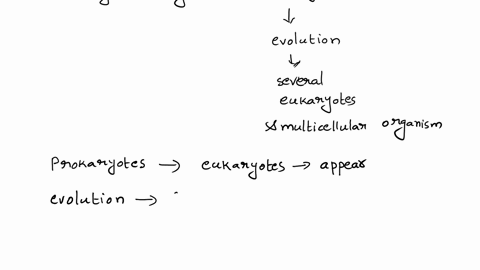 ↓
evolution
↓
several
eukaryotes
& multicellular organism
Prokaryotes → eukaryotes → appear
evolution →